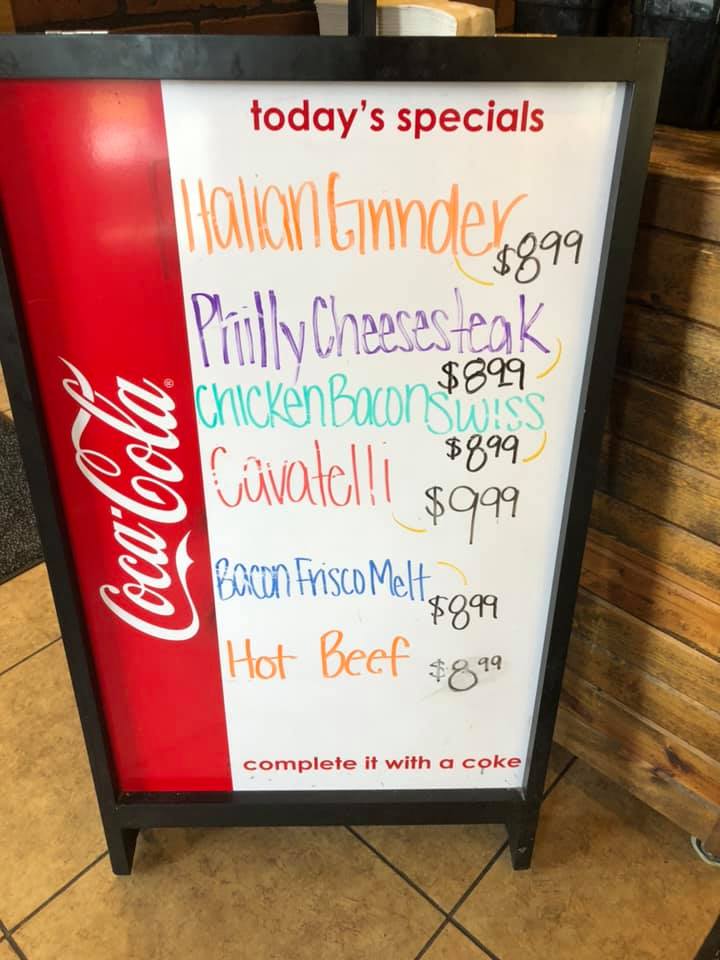 today's specials
Italian Grinder
$8.99
Philly Cheesesteak
$8.99
Chicken Bacon Swiss
$8.99
Cavatelli
$9.99
Bacon Frisco Melt
$8.99
Hot Beef $8.99
complete it with a coke
Coca-Cola®